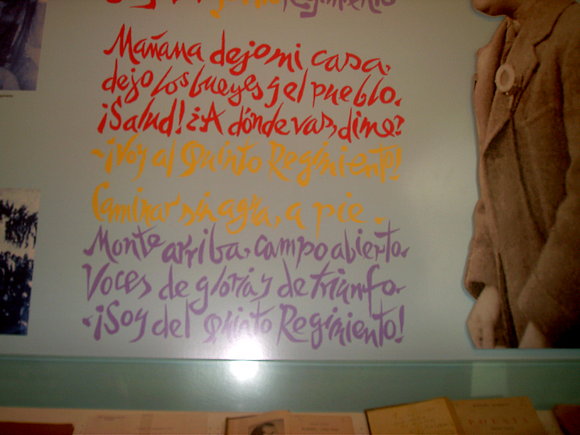 Regimiento
Mañana dejo mi casa,
dejo los bueyes y el pueblo.
¡Salud! ¿A dónde vas, dime?
-¡Voy al Quinto Regimiento!
Caminar sin agua, a pie.
Monte arriba, campo abierto.
Voces de gloria y de triunfo.
-¡Soy del Quinto Regimiento!
POESIA